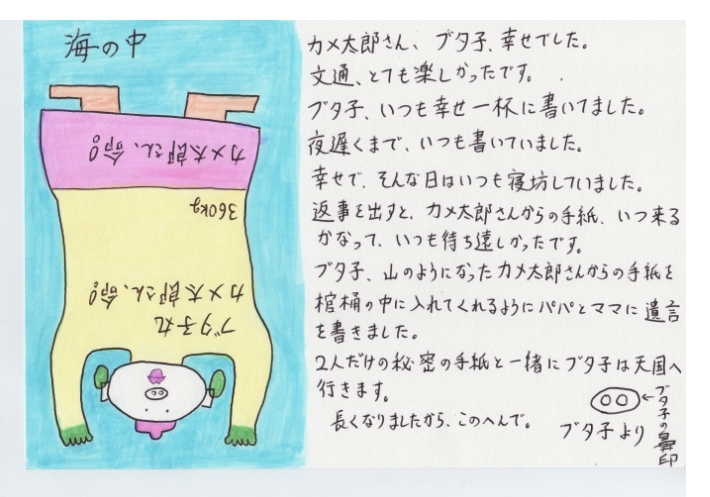 海の中
カメ太郎さん、命!
360kg
カメ太郎さん、命!
ブタ子丸
カメ太郎さん、ブタ子、幸せでした。
文通、とても楽しかったです。
ブタ子、いつも幸せ一杯に書いてました。
夜遅くまで、いつも書いていました。
幸せで、そんな日はいつも寝坊していました。
返事を出すと、カメ太郎さんからの手紙、いつ来る
かなって、いつも待ち遠しかったです。
ブタ子、山のようになったカメ太郎さんからの手紙を
棺桶の中に入れてくれるようにパパとママに遺言
を書きました。
2人だけの秘密の手紙と一緒にブタ子は天国へ
行きます。
長くなりましたから、このへんで。
ブタ子より
←ブタ子の鼻印